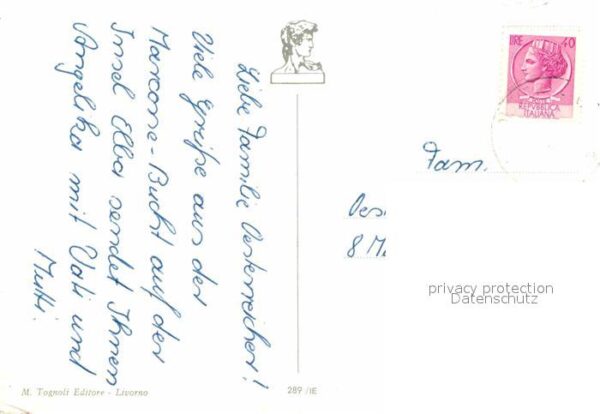 Liebe Familie Oesterreicher!
Viele Grüße aus der
Marcone-Bucht auf der
Insel Elba sendet Ihnen
Angelika mit Vati und
Mutti.
LIRE 40
REPVBBLICA
ITALIANA
Fam.
Oes
8 M
privacy protection
Datenschutz
M. Tognoli Editore - Livorno
289 /IE